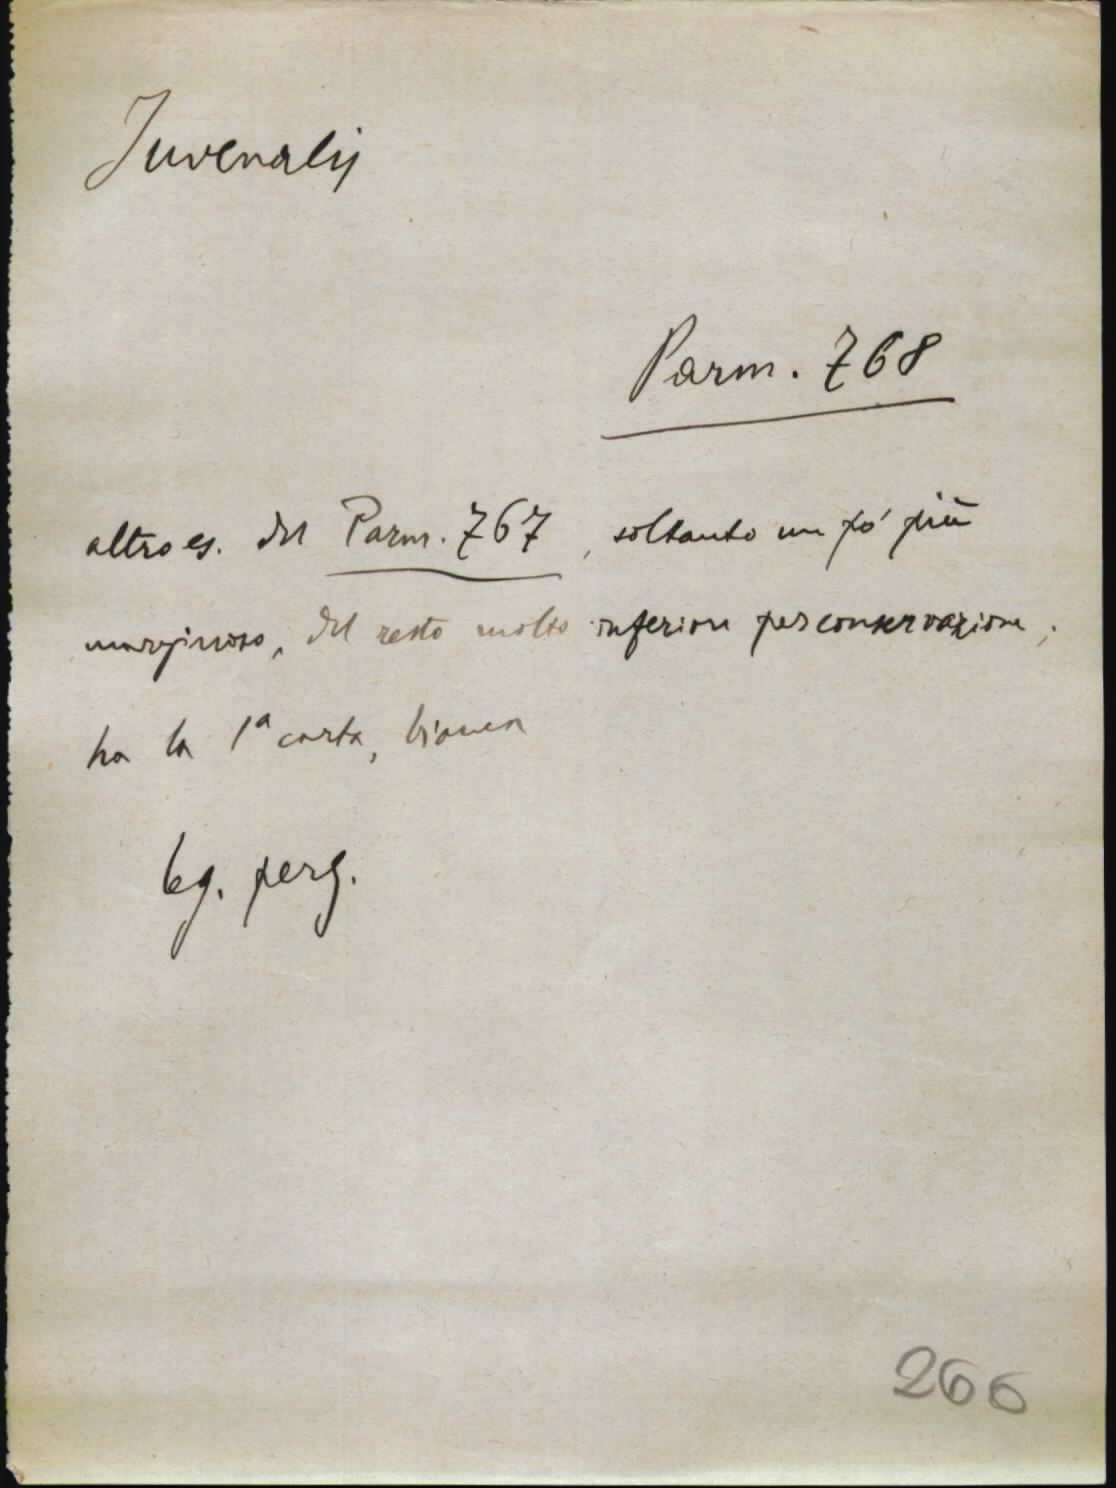 Juvenalis
Parm. 768
altro es. del Parm. 767, soltanto un pó più
marginoso, del resto molto inferiore per conservazione;
ha la 1ª carta, bianca
leg. perg.
266